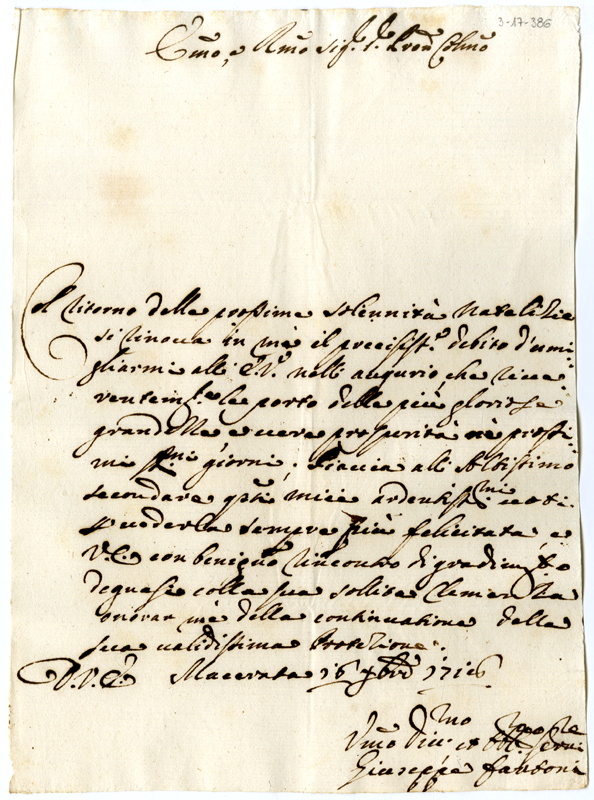 3-17-386
Emo, e Rmo Sig.r Pron Colmo
Col ritorno delle prossime solennità Natalizie
si rinova in me il precisiss.o debito d'umi-
gliarmi all' E.V. nell' augurio, che rive-
rentem.te le porto delle più gloriose
grandezze, e vere prosperità ne prossi-
mi giorni; Piaccia all' Altissimo
secondare q.sti miei ardentiss.mi voti
p vederla sempre più felicitata, e
V.E. con benigno rincontro di gradim.to
degnasi colla sua solita Clemenza
onorar me della continuatione della
sua validissima Protezione.
D.V.E. Macerata 16 Xbre 1716
Vmo Div.mo et Obl. Serv.
Giuseppe Fantoni